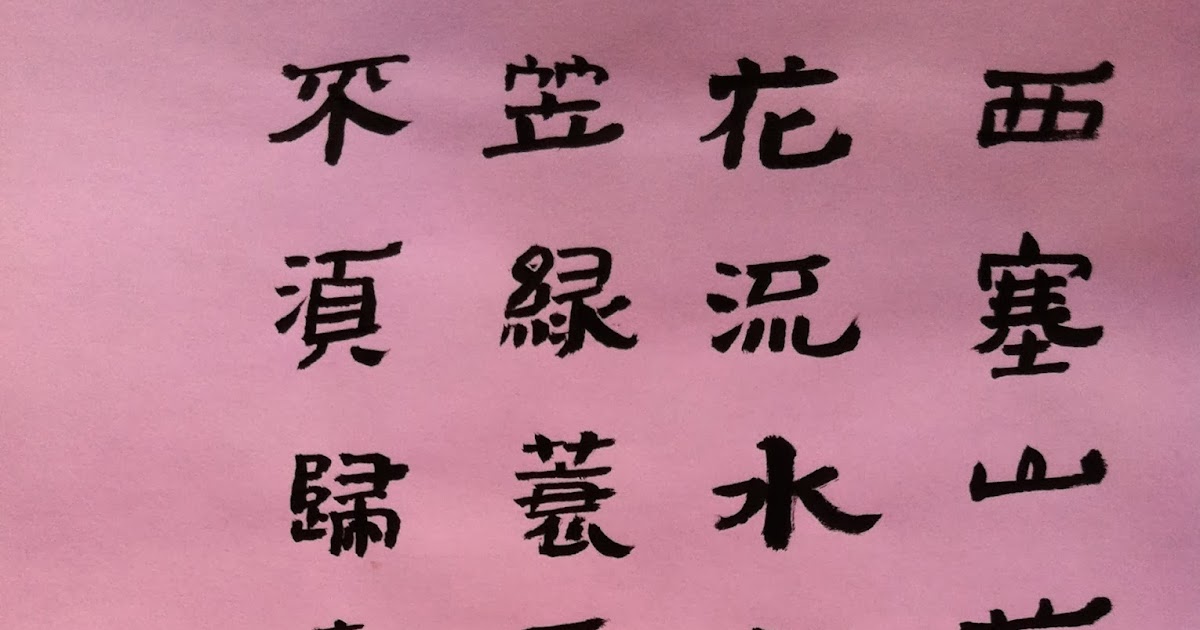 西塞山前
花流水
笠綠蓑
不須歸